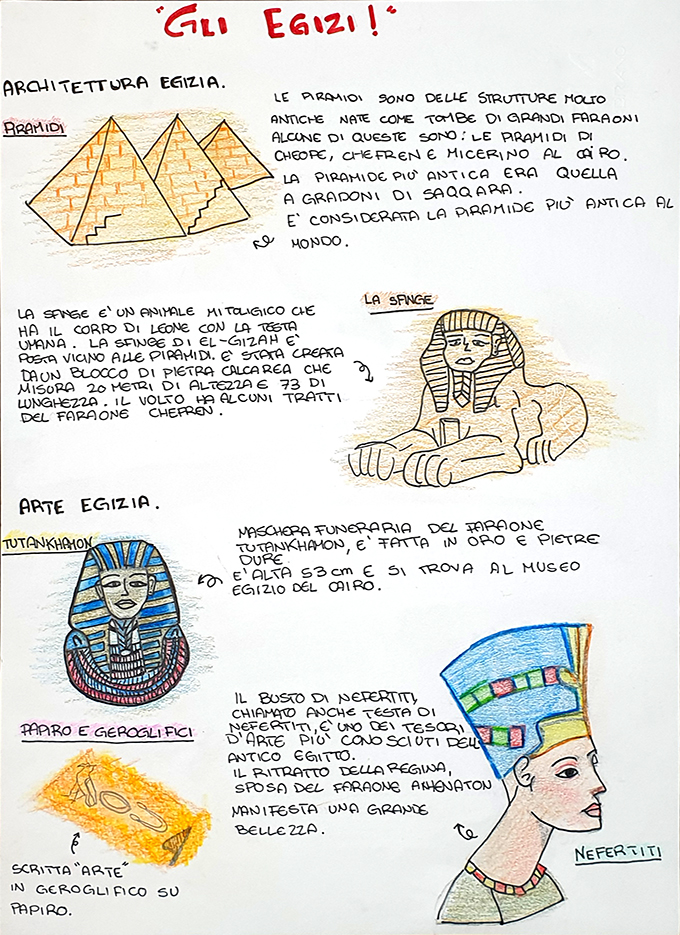 "GLI EGIZI!"
ARCHITETTURA EGIZIA.
PIRAMIDI
LE PIRAMIDI SONO DELLE STRUTTURE MOLTO
ANTICHE NATE COME TOMBE DI GRANDI FARAONI
ALCUNE DI QUESTE SONO: LE PIRAMIDI DI
CHEOPE, CHEFREN E MICERINO AL CAIRO.
LA PIRAMIDE PIU' ANTICA ERA QUELLA
A GRADONI DI SAQQARA.
E' CONSIDERATA LA PIRAMIDE PIU' ANTICA AL
MONDO.
LA SFINGE
LA SFINGE E' UN ANIMALE MITOLIGICO CHE
HA IL CORPO DI LEONE CON LA TESTA
UMANA. LA SFINGE DI EL-GIZAH E'
POSTA VICINO ALLE PIRAMIDI. E' STATA CREATA
DA UN BLOCCO DI PIETRA CALCAREA CHE
MISURA 20 METRI DI ALTEZZA E 73 DI
LUNGHEZZA. IL VOLTO HA ALCUNI TRATTI
DEL FARAONE CHEFREN.
ARTE EGIZIA.
TUTANKHAMON
MASCHERA FUNERARIA DEL FARAONE
TUTANKHAMON, E' FATTA IN ORO E PIETRE
DURE
E' ALTA 53 cm E SI TROVA AL MUSEO
EGIZIO DEL CAIRO.
IL BUSTO DI NEFERTITI,
CHIAMATO ANCHE TESTA DI
NEFERTITI, E' UNO DEI TESORI
D'ARTE PIU' CONOSCIUTI DELL
ANTICO EGITTO.
IL RITRATTO DELLA REGINA,
SPOSA DEL FARAONE AKHENATON
MANIFESTA UNA GRANDE
BELLEZZA.
NEFERTITI
PAPIRO E GEROGLIFICI
SCRITTA "ARTE"
IN GEROGLIFICO SU
PAPIRO.